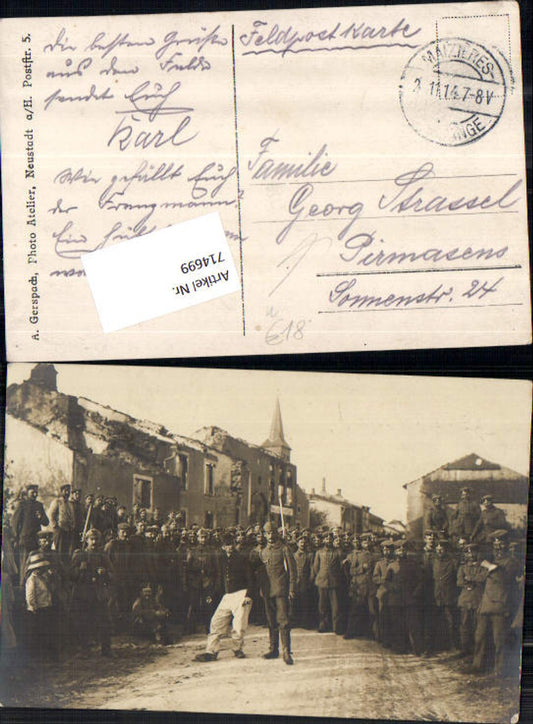 Feldpostkarte
Die besten Grüße
aus dem Felde
sendet Euch
Karl
Wie gefällt Euch
der Franzmann?
Ein
A. Gerspach, Photo Atelier, Neustadt a/H. Poststr. 5.
MAIZIERES-
2.11.14.7-8V
Familie
Georg Strassel
Pirmasens
Sonnenstr. 24
€18
Artikel Nr.
714699